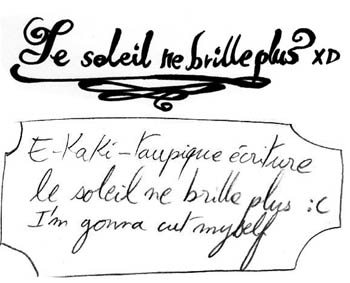 Le soleil ne brille plus? XD
E-Kaki-taupique écriture
le soleil ne brille plus :C
I'm gonna cut myself